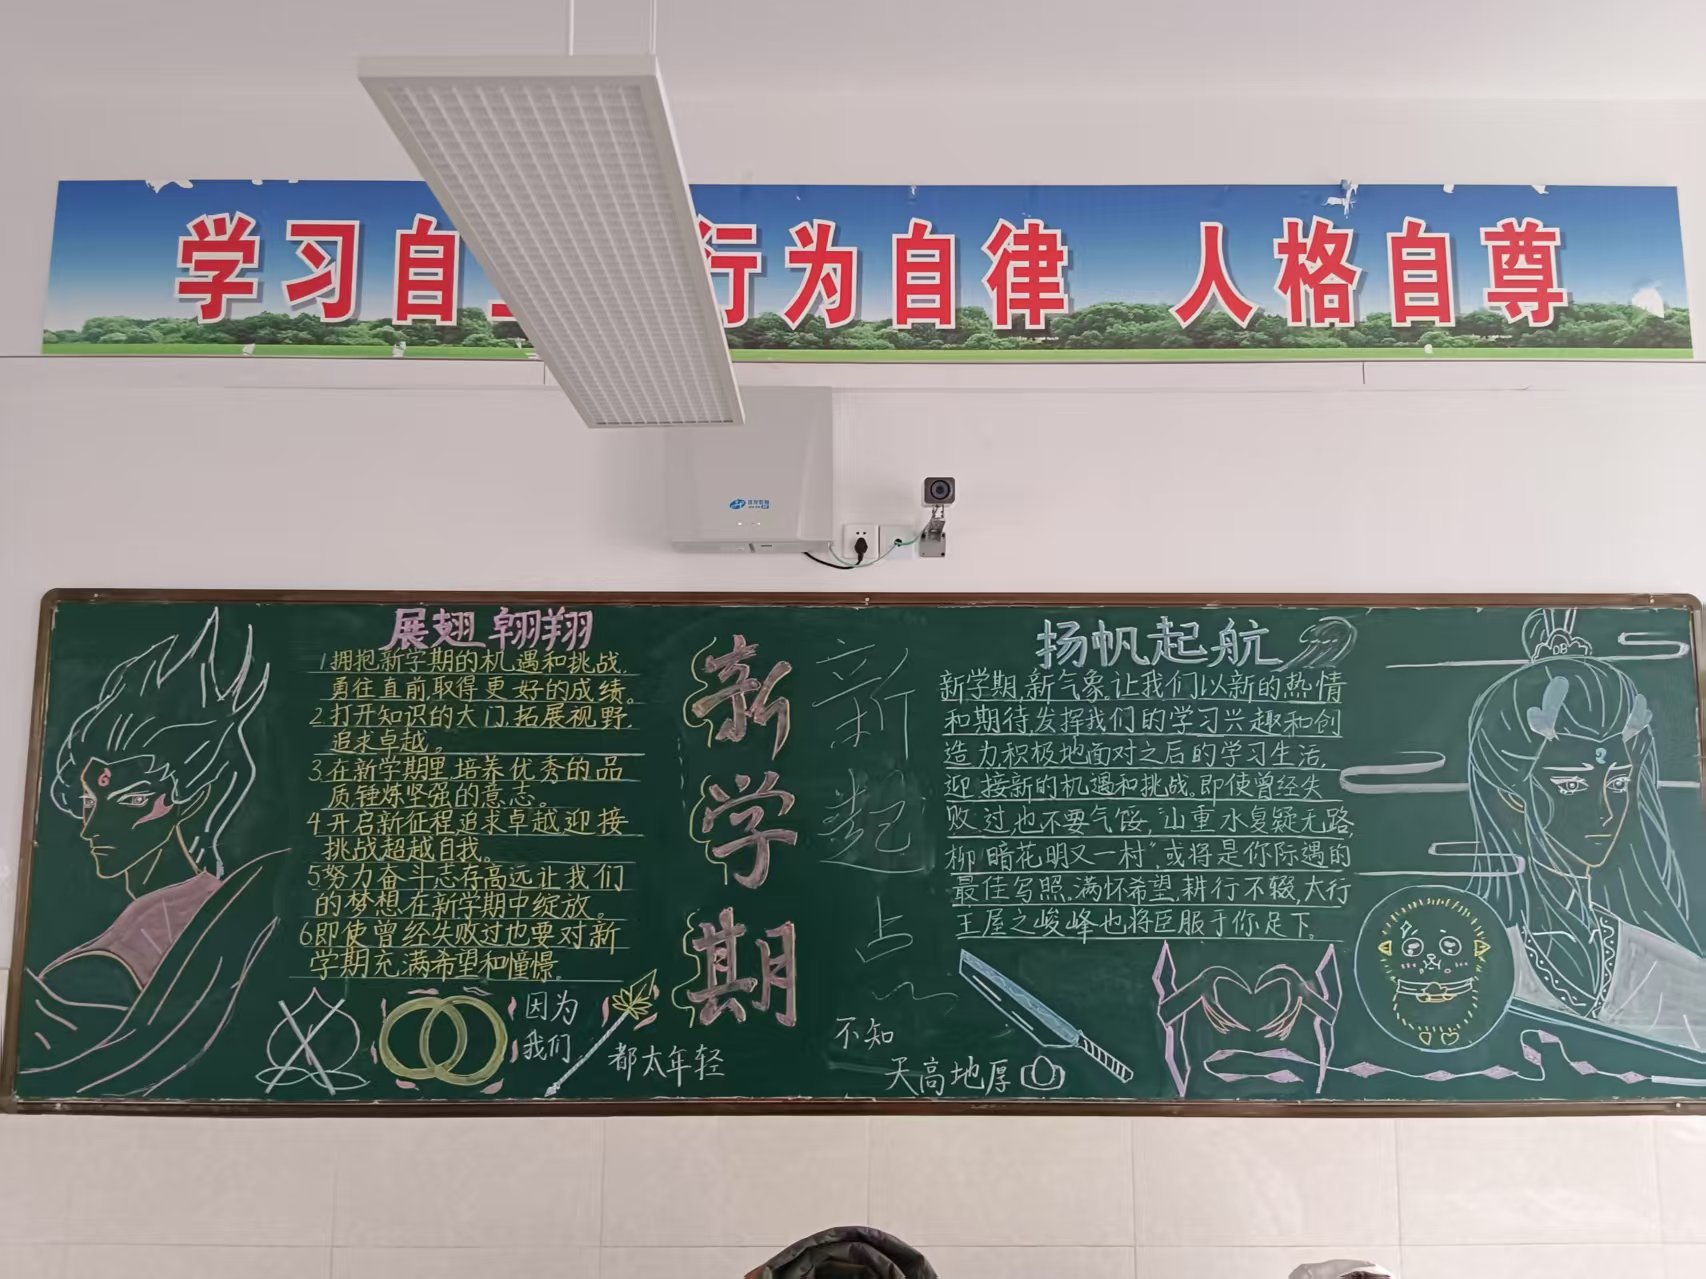 学习自 行为自律 人格自尊
展翅翱翔
1拥抱新学期的机遇和挑战,
勇往直前,取得更好的成绩。
2.打开知识的大门,拓展视野,
追求卓越。
3.在新学期里,培养优秀的品
质锤炼坚强的意志。
4开启新征程,追求卓越,迎接
挑战超越自我。
5.努力奋斗志存高远,让我们
的梦想在新学期中绽放。
6即使曾经失败过也要对新
学期充满希望和憧憬。
因为
我们
都太年轻
新学期
新起点
不知
天高地厚
扬帆起航
新学期,新气象,让我们以新的热情
和期待,发挥我们的学习兴趣和创
造力,积极地面对之后的学习生活,
迎接新的机遇和挑战。即使曾经失
败过,也不要气馁,"山重水复疑无路,
柳暗花明又一村",或将是你际遇的
最佳写照,满怀希望,耕行不辍,太行
王屋之峻峰也将臣服于你足下。
DB